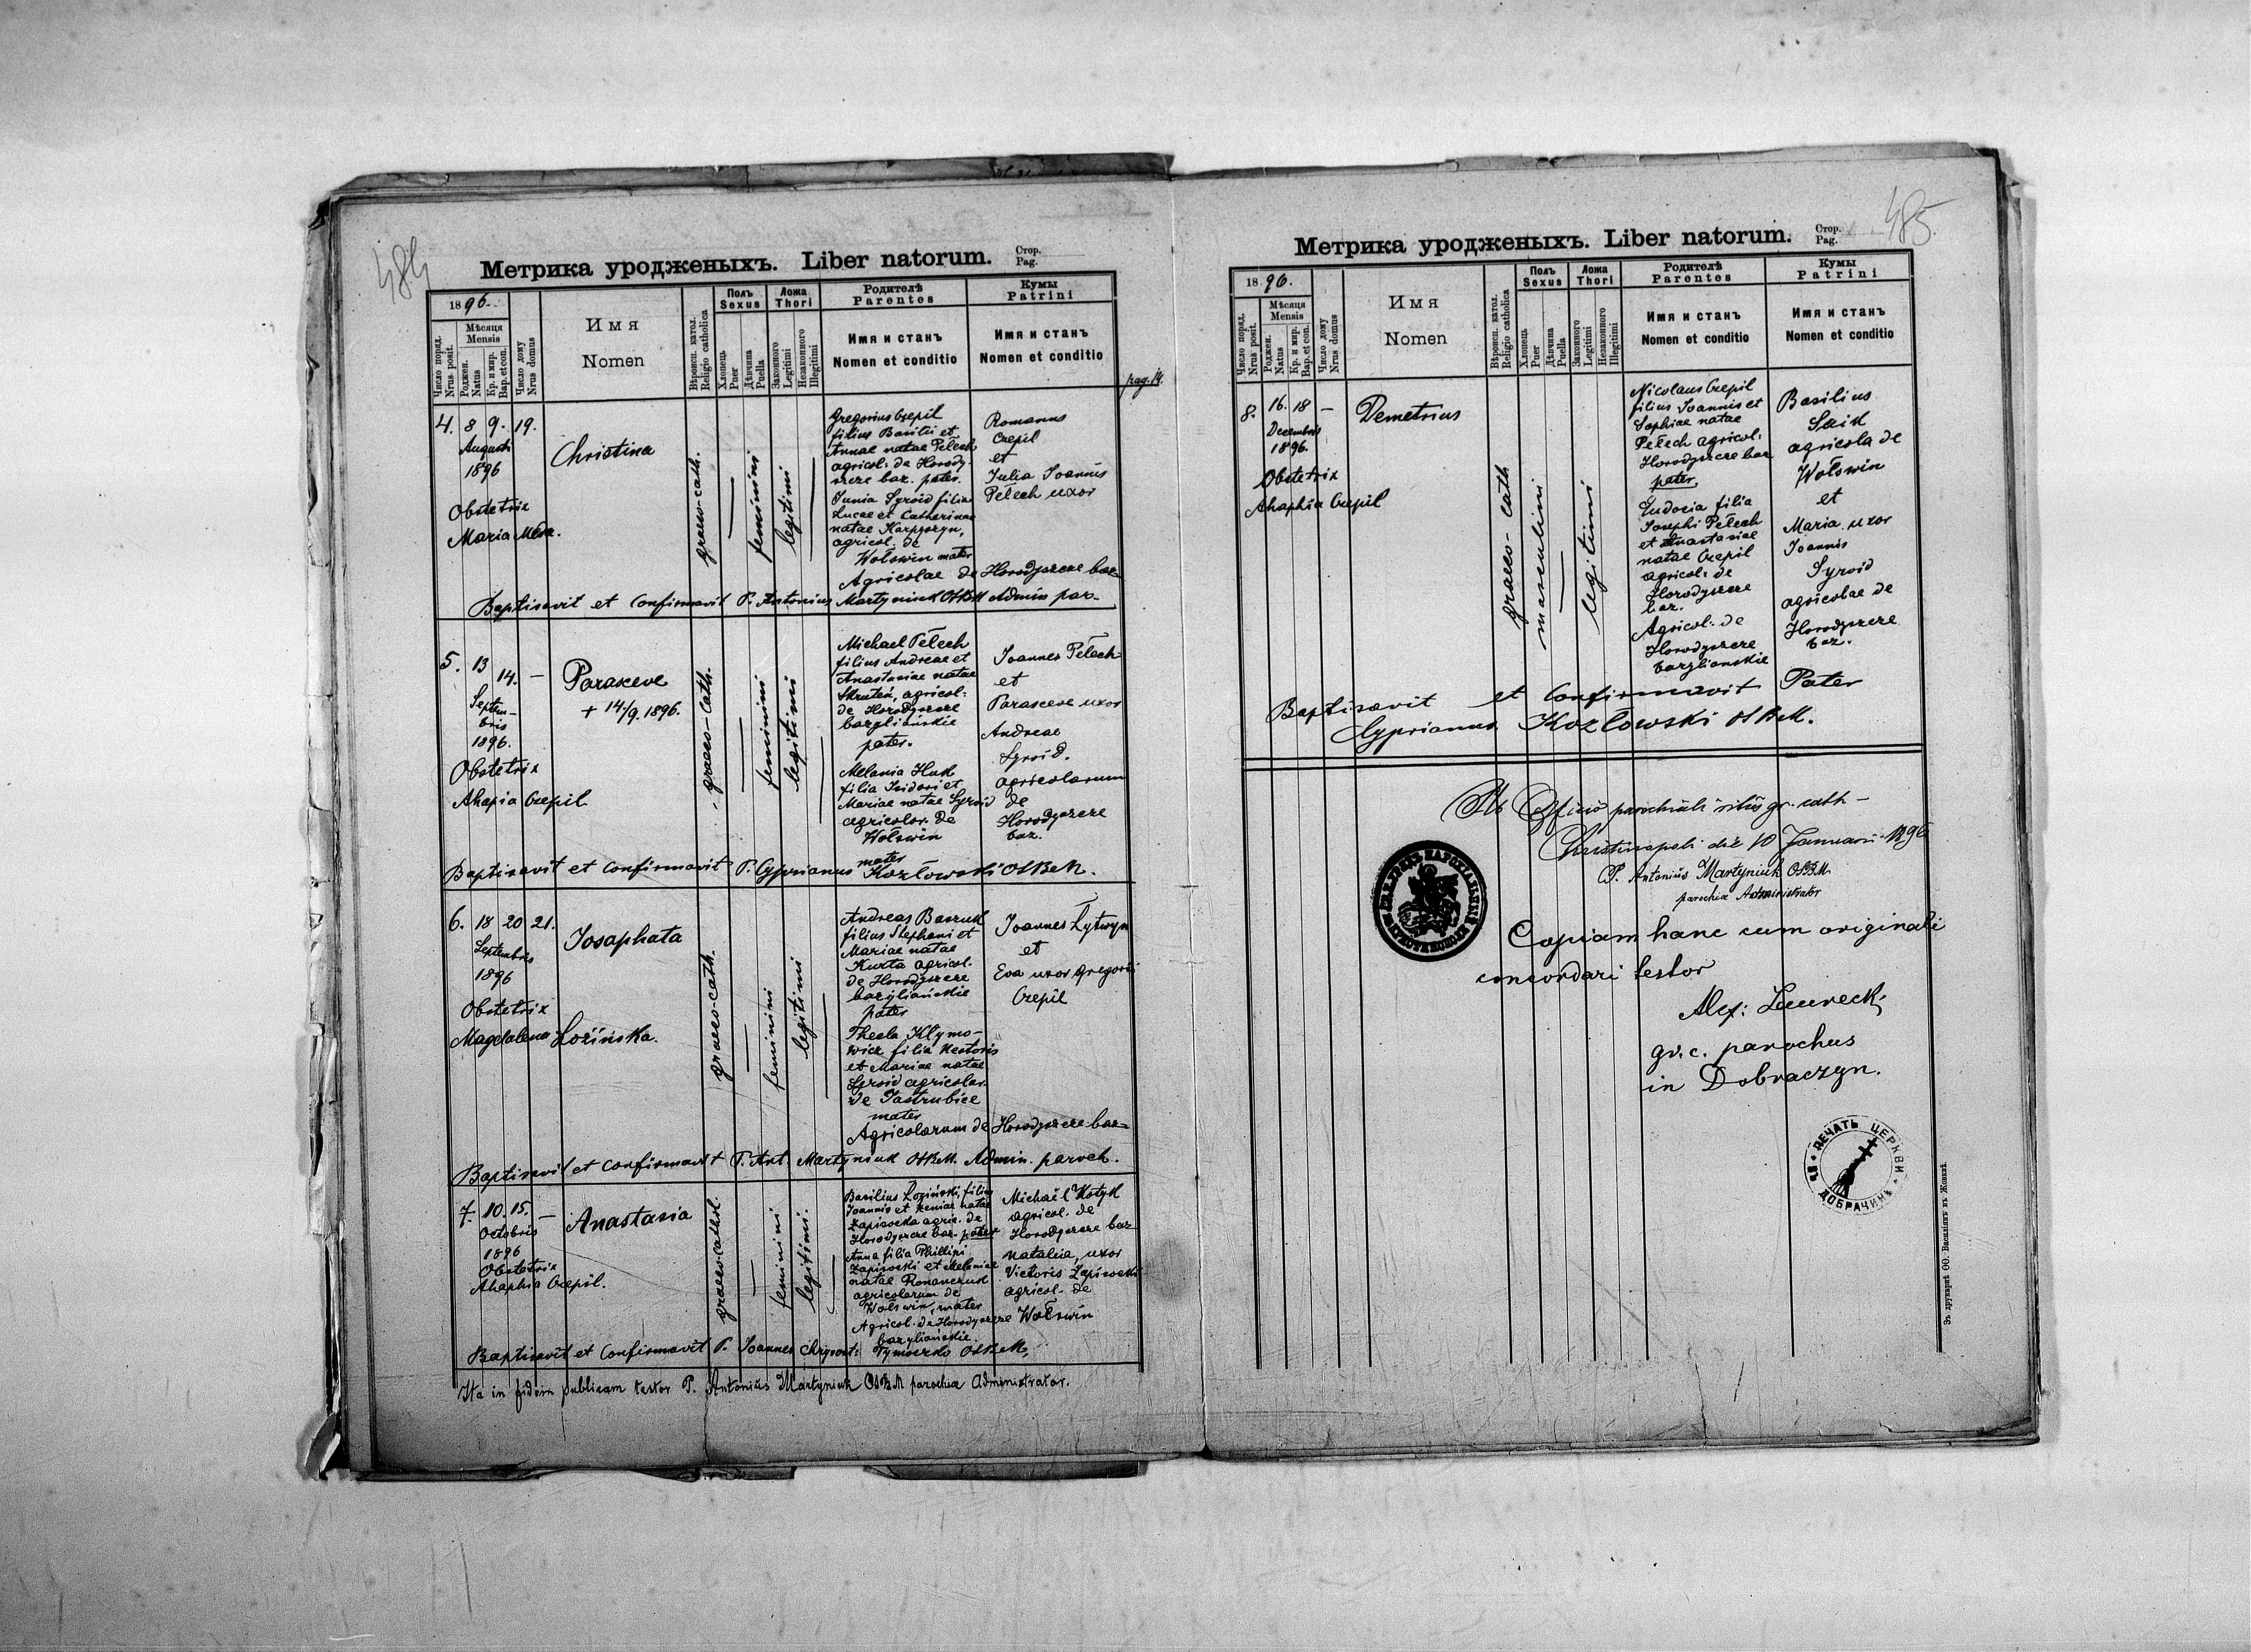 484
Метрика уродженыхъ. Liber natorum.
Стор.
Pag.
1896.
Число поряд.
Nrus posit.
Мѣсяця
Mensis
Роджен.
Natus
Кр. и мир.
Bap. et con.
Число дому
Nrus domus
Имя
Nomen
Вѣроисп. катол.
Religio catholica
Полъ
Sexus
Хлопець
Puer
Дѣвчина
Puella
Ложа
Thori
Законного
Legitimi
Незаконного
Illegitimi
Родителѣ
Parentes
Имя и станъ
Nomen et conditio
Кумы
Patrini
Имя и станъ
Nomen et conditio
pag. 14.
4. 8 9. 19.
Augusti
1896
Obstetrix
Maria
Christina
graeco-cath.
feminini
legitimi
Gregorius Czepil
filius Basilii et
Annae natae Pełech
agricol: de Horody-
szcze baz. pater.
Junia Syroid filia
Lucae et Catharinae
natae Karpyszyn,
agricol. de
Wołswin mater
Agricolae de Horodyszcze baz-
Romanus
Czepil
et
Julia Joannis
Pełech uxor
Baptisavit et Confirmavit P. Antonius Martyniuk OSBM Admin par-
5. 13 14. —
Septem-
bris
1896.
Obstetrix
Ahapia Czepil
Parasceve
+ 14/9. 1896.
graeco-cath.
feminini
legitimi
Michael Pełech
filius Andreae et
Anastasiae natae
agricol:
de Horodyszcze
bazyliańskie
pater.
Melania Huk
filia Isidori et
Mariae natae Syroid
agricolar. de
Wołswin
mater
Joannes Pełech
et
Parasceve uxor
Andreae
Syroid.
agricolarum
de
Horodyszcze
baz.
Baptisavit et Confirmavit P. Cyprianus Kozłowski OSBM.
6. 18 20 21.
Septembris
1896
Obstetrix
Magdalena Łozińska.
Josaphata
graeco-cath.
feminini
legitimi
Andreas Baszuk
filius Stephani et
Mariae natae
Kurta agricol.
de Horodyszcze
bazyliańskie
pater
Thecla Klymo-
wicz filia Nestoris
et Mariae natae
Syroid agricolar.
de Jastrubice
mater
Agricolarum de Horodyszcze baz-
Joannes Łytwyn
et
Eva uxor Gregorii
Czepil
Baptisavit et Confirmavit P. Ant. Martyniuk OSBM. Admin. paroch.
7. 10. 15. —
Octobris
1896
Obstetrix
Ahaphia Czepil.
Anastasia
graeco-cathol.
feminini
legitimi.
Basilius Łoziński, filius
Joannis et Xeniae natae
Zapisocka agric. de
Horodyszcze baz. pater
Anna filia Phillipi
Zapisocki et Melaniae
natae Romanczuk
agricolarum de
Wołswin, mater
Agricol. de Horodyszcze
bazyliańskie.
Michaël Kotyk
agricol. de
Horodyszcze baz
Natalia, uxor
Victoris Zapisocki
agricol. de
Wołswin
Baptisavit et Confirmavit P. Joannes Chrysost: Tymoczko OSBM,
Ita in fidem publicam testor P. Antonius Martyniuk OSBM parochiae Administrator.
485.
Метрика уродженыхъ. Liber natorum.
Стор.
Pag.
1896.
Число поряд.
Nrus posit.
Мѣсяця
Mensis
Роджен.
Natus
Кр. и мир.
Bap. et con.
Число дому
Nrus domus
Имя
Nomen
Вѣроисп. катол.
Religio catholica
Полъ
Sexus
Хлопець
Puer
Дѣвчина
Puella
Ложа
Thori
Законного
Legitimi
Незаконного
Illegitimi
Родителѣ
Parentes
Имя и станъ
Nomen et conditio
Кумы
Patrini
Имя и станъ
Nomen et conditio
8. 16. 18 —
Decembris
1896.
Obstetrix
Ahaphia Czepil
Demetrius
graeco-cath
masculini
legitimi
Nicolaus Czepil
filius Joannis et
Sophiae natae
Pełech agricol:
Horodyszcze baz
pater,
Eudocia filia
Josephi Pełech
et Anastasiae
natae Czepil
agricol: de
Horodyszcze
baz.
Agricol: de
Horodyszcze
bazylianskie
Basilius
Saik
agricola de
Wołswin
et
Maria uxor
Joannis
Syroid
agricolae de
Horodyszcze
baz.
Baptisavit et Confirmavit Pater
Cyprianus Kozłowski OSBM.
Ab Officio parochiali ritus gr. cath-
Christinopoli die 10 Januarii 1896
P. Antonius Martyniuk OSBM
parochiae Administrator
Copiam hanc cum originali
concordari testor
Alex:
gr. c. parochus
in Dobraczyn.
ПЕЧАТЬ ЦЕРКВИ
ДОБРАЧИНЬ
Зъ друкарнѣ ОО. Василіянъ въ Жовквѣ.